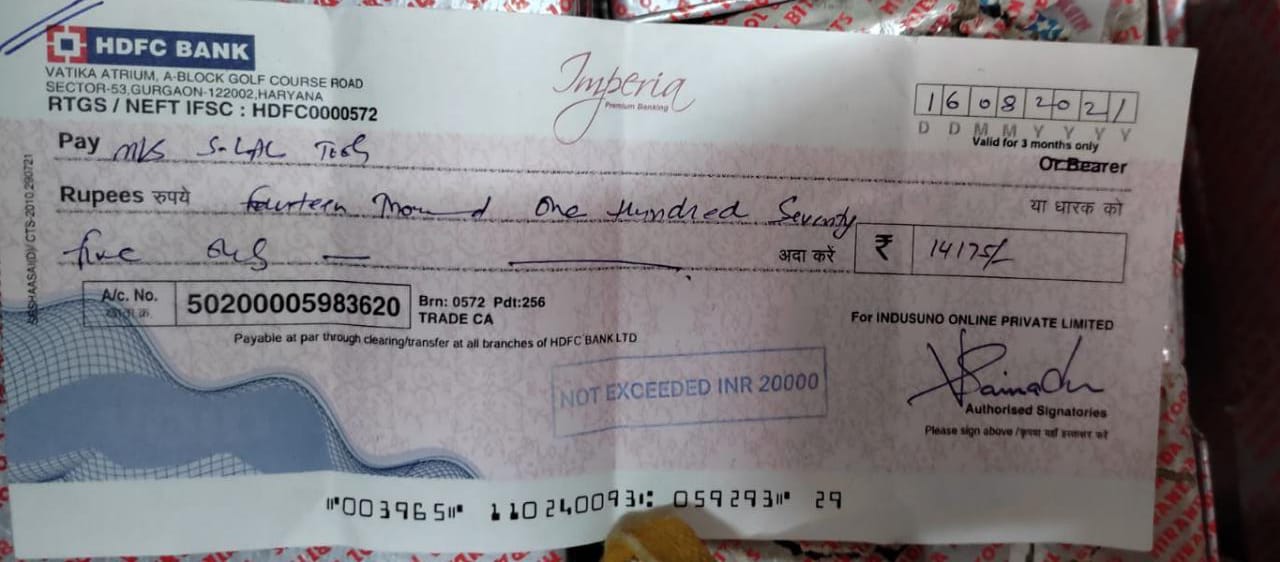 HDFC BANK
VATIKA ATRIUM, A-BLOCK GOLF COURSE ROAD
SECTOR-53,GURGAON-122002,HARYANA
RTGS / NEFT IFSC : HDFC0000572
Imperia
Premium Banking
16082021
D D M M Y Y Y Y
Valid for 3 months only
Pay M/S
Or Bearer
Rupees रुपये fourteen One Hundred Seventy
या धारक को
five अदा करें ₹ 14175/-
A/c. No. 50200005983620 Brn: 0572 Pdt:256
TRADE CA
Payable at par through clearing/transfer at all branches of HDFC BANK LTD
For INDUSUNO ONLINE PRIVATE LIMITED
NOT EXCEEDED INR 20000
Authorised Signatories
Please sign above /कृपया यहाँ हस्ताक्षर करें
⑈003965⑈ 110240093⑆ 059293⑈ 29